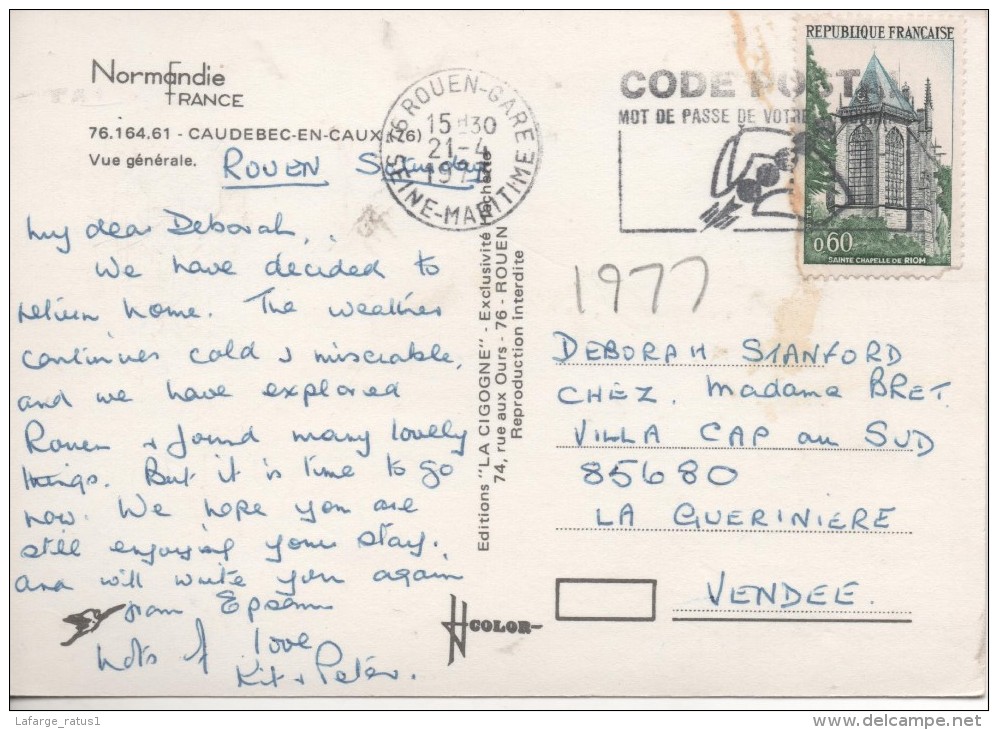 Normandie
FRANCE
76.164.61 - CAUDEBEC-EN-CAUX (76)
Vue générale.
ROUEN Sunday
My dear Deborah,
We have decided to
return home. The weather
continues cold & miserable,
and we have explored
Rouen & found many lovely
things. But it is time to go
now. We hope you are
still enjoying your stay,
and will write you again
from Epsom
Lots of love
Kit & Peter.
76 ROUEN-GARE
15H30
21-4
SEINE-MARITIME
CODE POSTAL
MOT DE PASSE DE VOTRE
REPUBLIQUE FRANÇAISE
0,60
SAINTE CHAPELLE DE RIOM
Editions "LA CIGOGNE" - Exclusivité Hachette
74, rue aux Ours - 76 - ROUEN
Reproduction interdite
1977
DEBORAH STANFORD
CHEZ. Madame BRET.
VILLA CAP au SUD
85680
LA GUERINIERE
VENDEE.
COLOR
Lafarge_ratus1
delcampe.net